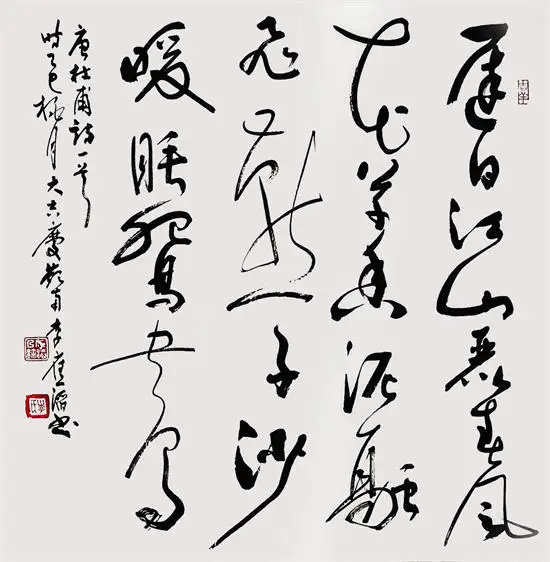 遲日江山麗春風
花草香泥融
飛燕子沙
暖睡鴛鴦
唐杜甫詩一首
時乙巳極月大吉慶 南李 書